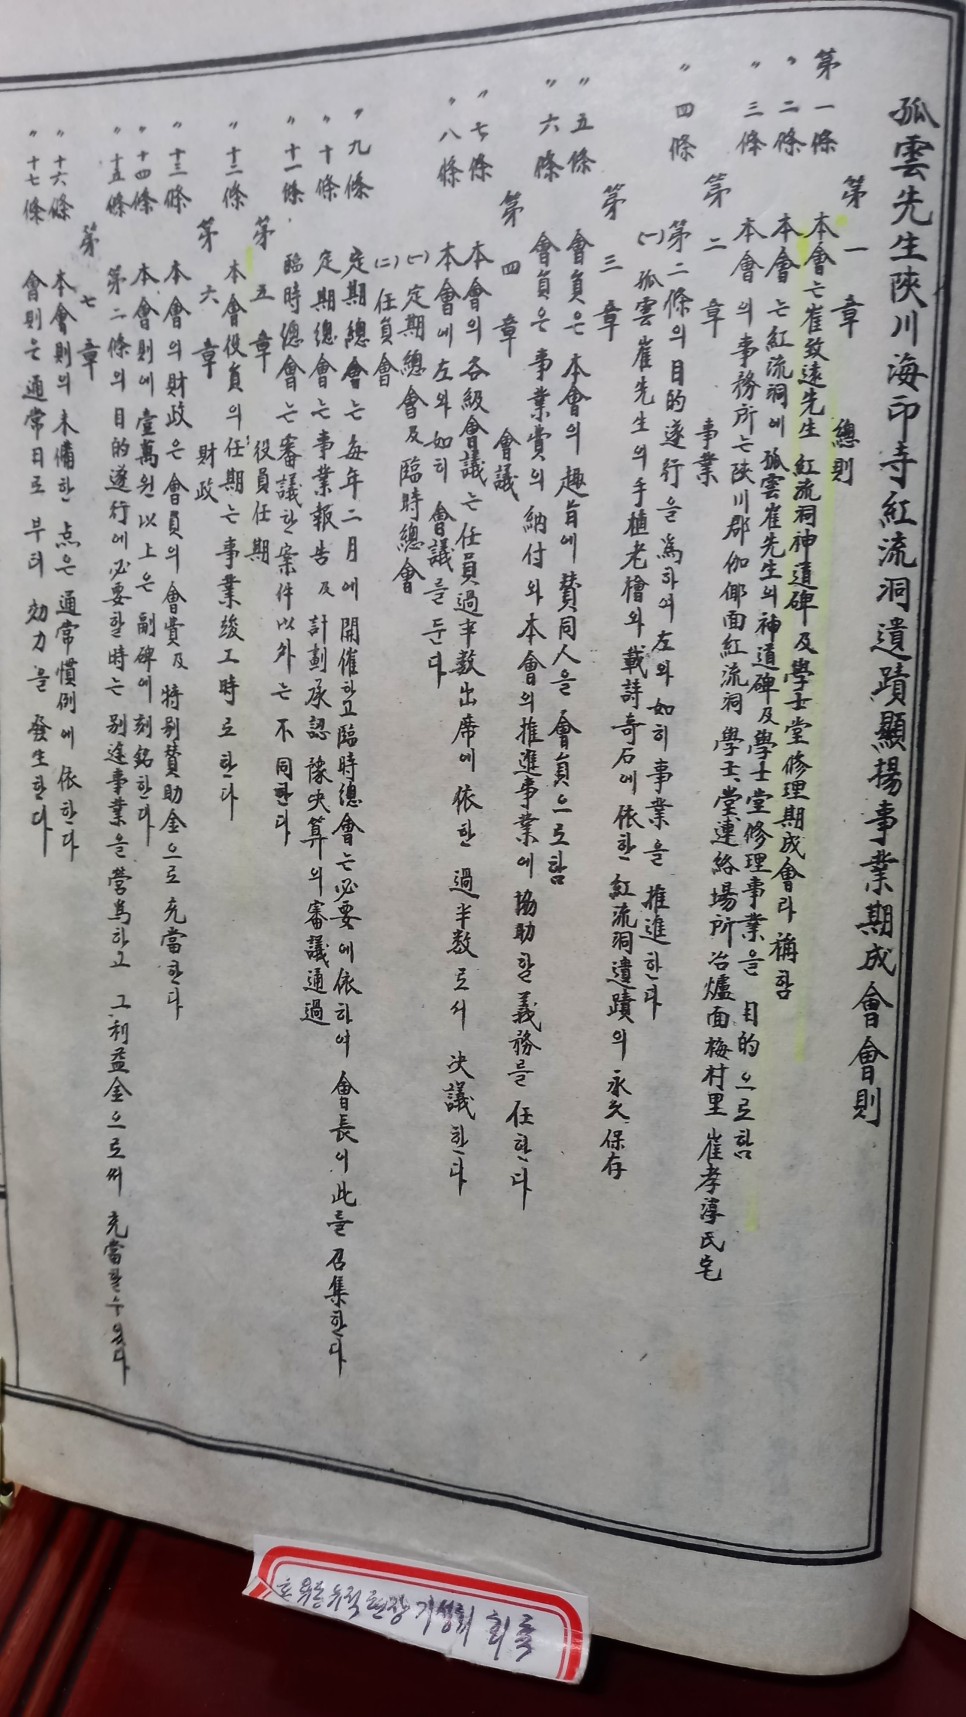 孤雲先生陜川海印寺紅流洞遺蹟顯揚事業期成會會則
第一章 總則
第一條 本會는 崔致遠先生 紅流祠神道碑 及 學士堂修理期成會라 稱함
〃二條 本會는 紅流洞에 孤雲崔先生의 神道碑及學士堂修理事業을 目的으로함
〃三條 本會의 事務所는 陜川郡伽倻面紅流洞 學士堂連絡場所冶爐面梅村里 崔孝淳氏宅
第二章 事業
〃四條 第二條의 目的遂行을 爲하여 左와如히 事業을 推進한다
(一) 孤雲崔先生의 手植老檜와 載詩奇石에 依한 紅流洞遺蹟의 永久保存
第三章
〃五條 會員은 本會의 趣旨에 賛同人을 會員으로함
〃六條 會員은 事業費의 納付와 本會의 推進事業에 協助할 義務를 任한다
第四章 會議
〃七條 本會의 各級會議는 任員過半数出席에 依한 過半数로서 决議한다
〃八條 本會에 左와如히 會議를 둔다
(一) 定期總會及 臨時總會
(二) 任員會
〃九條 定期總會는 每年二月에 開催하고 臨時總會는 必要에依하여 會長이 此를 召集한다
〃十條 定期總會는 事業報告 及 計劃承認 豫决算의 審議通過
〃十一條 臨時總會는 審議한 案件以外는 不同한다
第五章 役員任期
〃十二條 本會役員의 任期는 事業竣工時로 한다
第六章 財政
〃十三條 本會의 財政은 會員의 會費及 特別賛助金으로 充當한다
〃十四條 本會則에 壹萬원以上은 副碑에 刻銘한다
〃十五條 第二條의 目的遂行에 必要할時는 別途事業을 營爲하고 그利益金으로써 充當할수있다
第七章
〃十六條 本會則의 未備한 点은 通常慣例에 依한다
〃十七條 會則은 通常日로 부터 効力을 發生한다
홍류동유적현장 기성회 회측